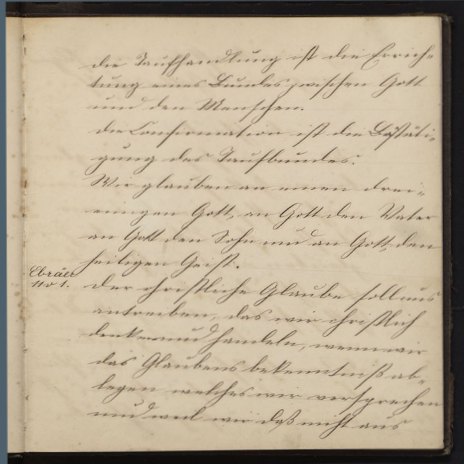 die Taufhandlung ist die Errich-
tung eines Bundes zwischen Gott
und den Menschen.
die Confirmation ist die Bestäti-
gung des Taufbundes.
Wir glauben an einen drei-
einigen Gott, an Gott den Vater
an Gott den Sohn und an Gott den
heiligen Geist.
Ebräer
11 v 1.
der christliche Glaube soll uns
antreiben, das wir christlich
denken und handeln, wenn wir
das Glaubens bekenntniß ab-
legen welches wir versprechen
und weil wir daß nicht aus